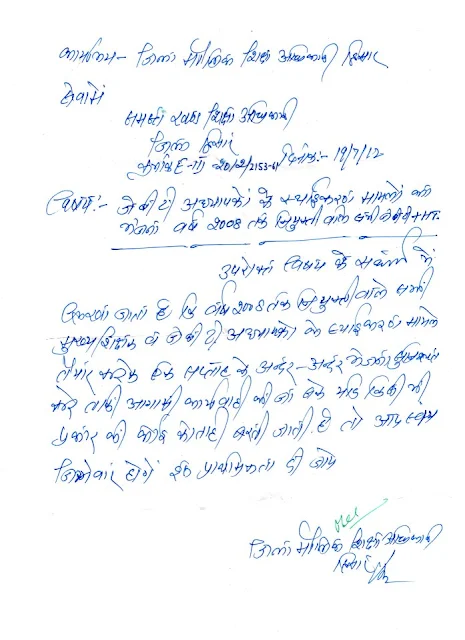 कार्यालय - जिला मौलिक शिक्षा अधिकारी हिसार
सेवामें
समस्त खण्ड शिक्षा अधिकारी
जिला हिसार
क्रमांक E-III 20/2/2153-61 दिनांक:- 19/7/12
विषय:- जे बी टी अध्यापकों के स्थाईकरण मामलों को
भेजना वर्ष 2008 तक नियुक्ती वाले सभी जे बी टी + H.T.
उपरोक्त विषय के सन्दर्भ में
लिखा जाता है कि वर्ष 2008 तक नियुक्ती वाले सभी
मुख्य शिक्षक व जे बी टी अध्यापकों के स्थाईकरण मामले
तैयार करके एक सप्ताह के अन्दर-अन्दर भेजना सुनिश्चित
करें ताकि आगामी कार्यवाही की जा सके यदि किसी भी
प्रकार की कोई कोताही बरती जाती है तो आप स्वयं
जिम्मेवार होंगे इसे प्राथमिकता दी जाये
जिला मौलिक शिक्षा अधिकारी
हिसार